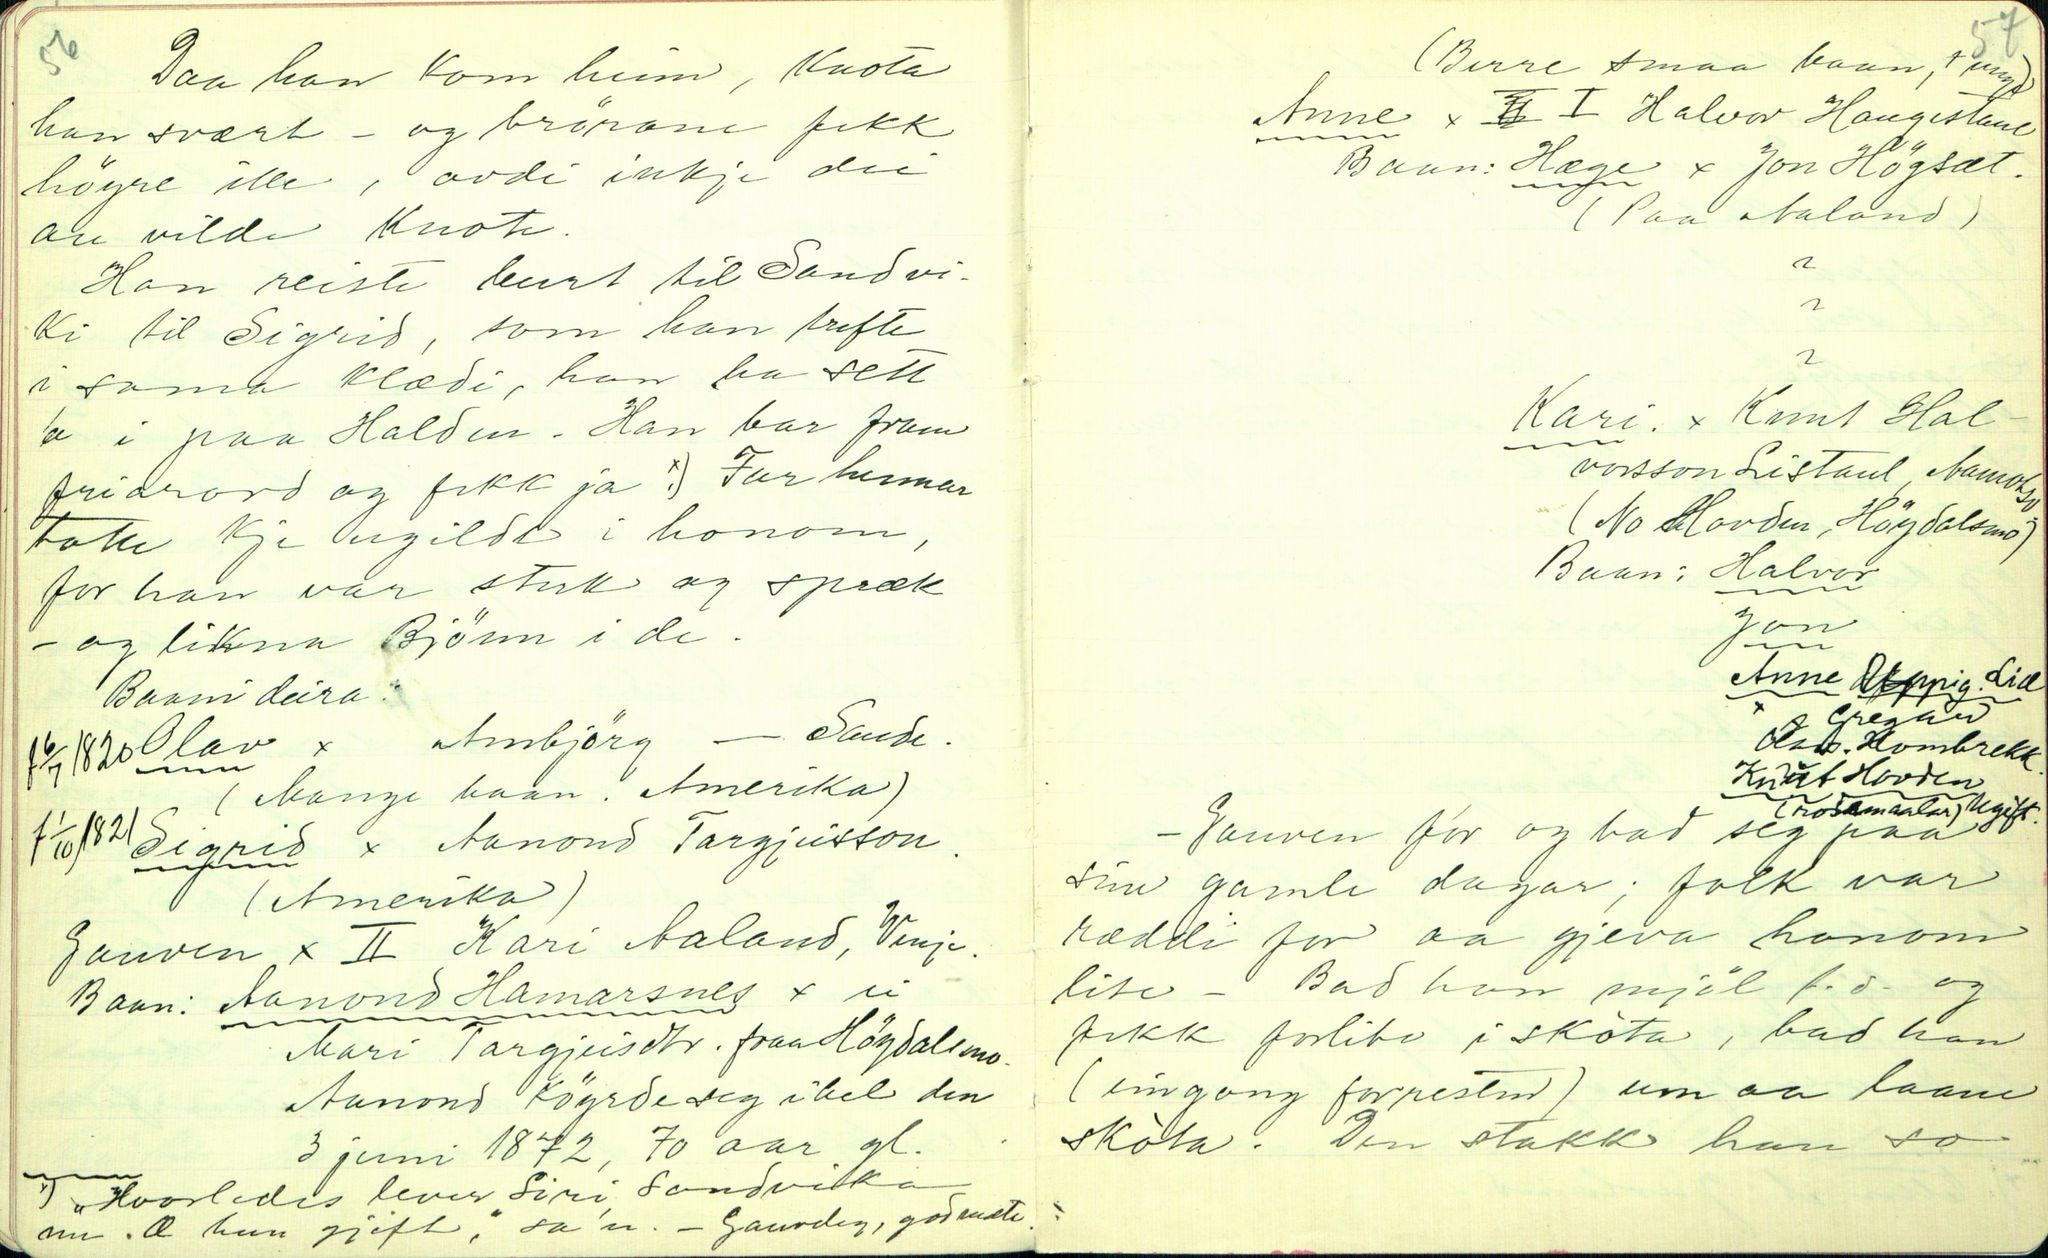 56
Daa han kom heim, knota
han svært - og brörane fekk
höyre ille, ovdi inkje dei
au vilde knote.
Han reiste burt til Sandvi-
ki til Sigrid, som han trefte
i sama klædi, han ha sett
ho i paa Halden. Han bar fram
friarord og fekk ja x) Far hennar
totte kje ugildt i honom,
for han var sterk og spræk
- og likna Björnn i de.
Baani deira:
f 6/7 1820 Olav x Anbjörg — Sande.
(Mange baan. Amerika)
f 1/10 1821 Sigrid x Aanond Targjeisson.
(Amerika)
Gauven x II Kari Aaland, Vinje.
Baan: Aanond Hamarsnes x ei
Mari Targjeisdtr. fraa Höydalsmo.
Aanond köyrde seg ihel den
3 juni 1872, 70 aar gl.
x) "Hvorledes lever Siri Sandvika
nu. Æ hun gjift," sa'n. - Gauvdeg, godmste.
57
(Berre smaa baan, + ung)
Anne x I Halvor Haugistaul
Baan: Hæge x Jon Högsæt.
(Paa Aaland)
?
?
?
Kari. x Knut Hal-
vorsson Listaul, Aamotsd.
(No Hovden, Höydalsmo)
Baan: Halvor
Jon
Anne Lid
x Gregar
Aas. Hombrekk.
Knut Hovden
(rosemaalar) Ugift.
- Gauven fór og bad seg paa
sine gamle dagar; folk var
ræddi for aa gjeva honom
lite - Bad han mjöl t.d. og
fekk forlite i skòta, bad han
(eingong forresten) um aa laane
skòta. Den stakk han so